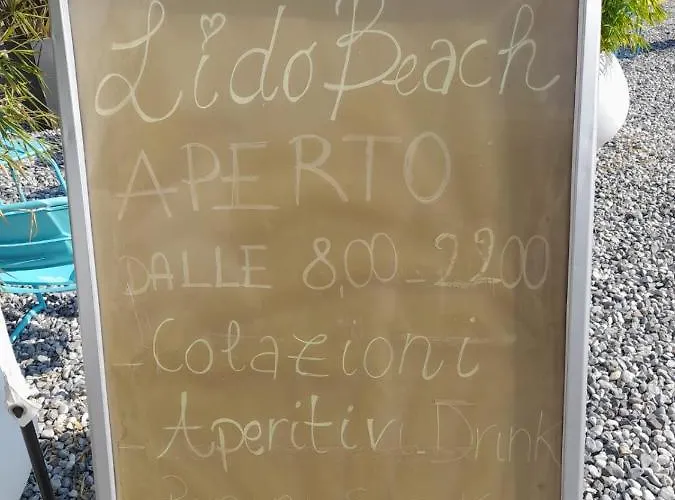 Lido Beach
APERTO
DALLE 8,00 - 22.00
- Colazioni
- Aperitivi. Drink